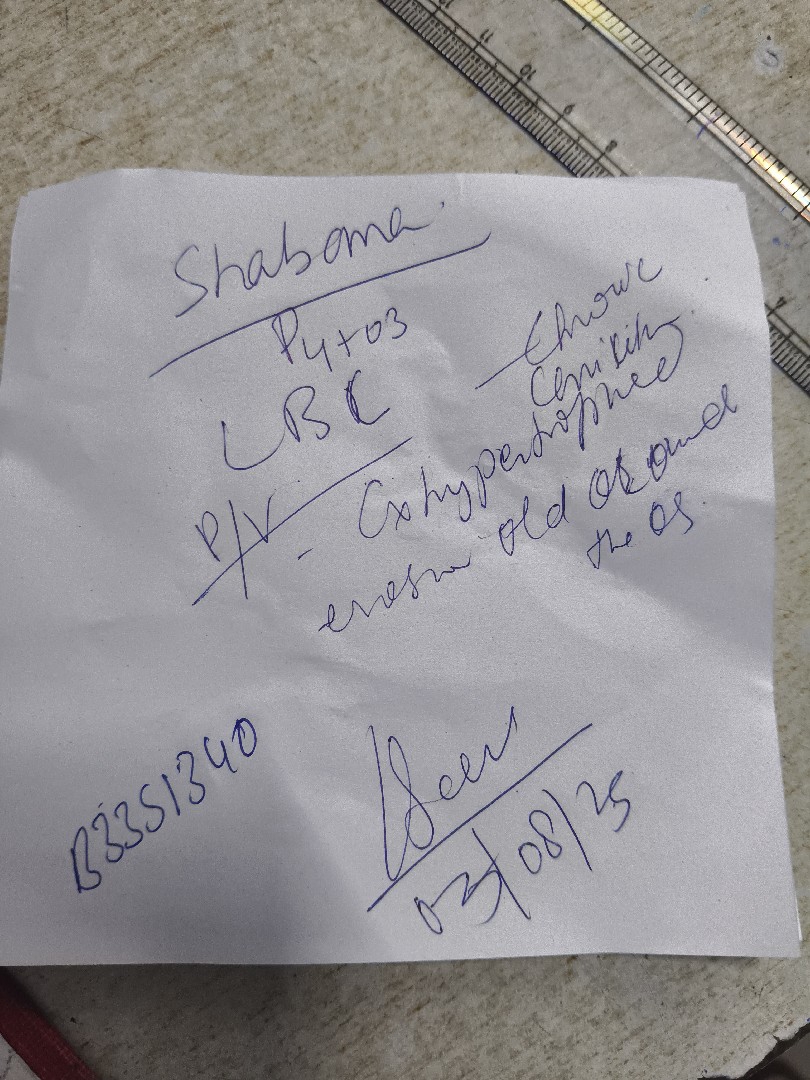 Shabana
P4+03
LBC
- Chronic
Cervicitis
P/V - Cx hypertrophied
erosion old around
the OS.
B3351340
03/08/25
11
10
9
8